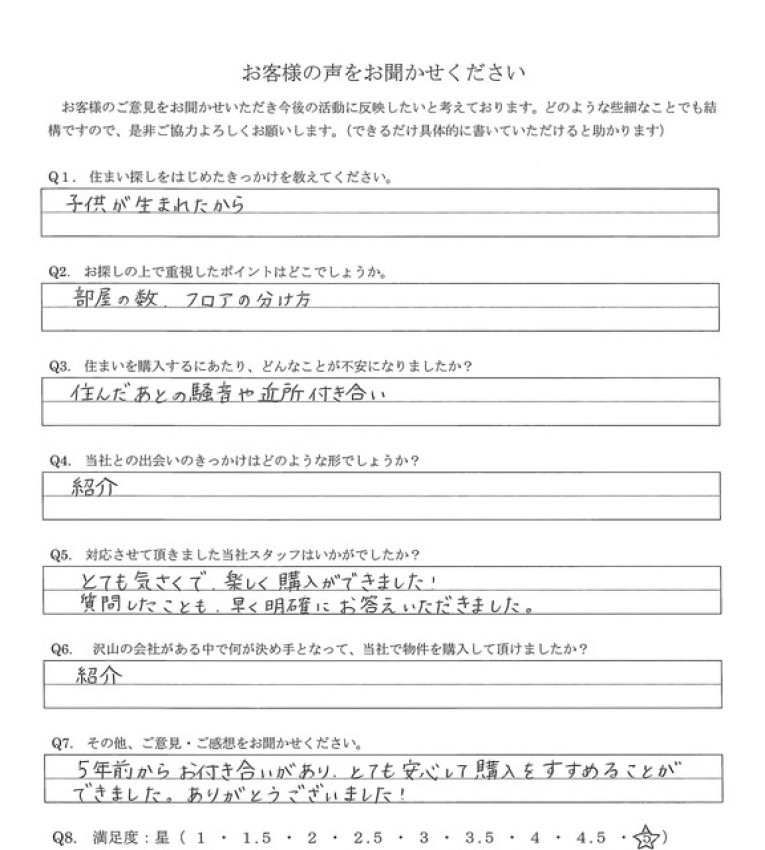 お客様の声をお聞かせください
お客様のご意見をお聞かせいただき今後の活動に反映したいと考えております。どのような些細なことでも結
構ですので、是非ご協力よろしくお願いします。（できるだけ具体的に書いていただけると助かります）
Q1. 住まい探しをはじめたきっかけを教えてください。
子供が生まれたから
Q2. お探しの上で重視したポイントはどこでしょうか。
部屋の数、フロアの分け方
Q3. 住まいを購入するにあたり、どんなことが不安になりましたか？
住んだあとの騒音や近所付き合い
Q4. 当社との出会いのきっかけはどのような形でしょうか？
紹介
Q5. 対応させて頂きました当社スタッフはいかがでしたか？
とても気さくで、楽しく購入ができました！
質問したことも、早く明確にお答えいただきました。
Q6. 沢山の会社がある中で何が決め手となって、当社で物件を購入して頂けましたか？
紹介
Q7. その他、ご意見・ご感想をお聞かせください。
5年前からお付き合いがあり、とても安心して購入をすすめることが
できました。ありがとうございました！
Q8. 満足度：星（ 1 ・ 1.5 ・ 2 ・ 2.5 ・ 3 ・ 3.5 ・ 4 ・ 4.5 ・ 5 ）